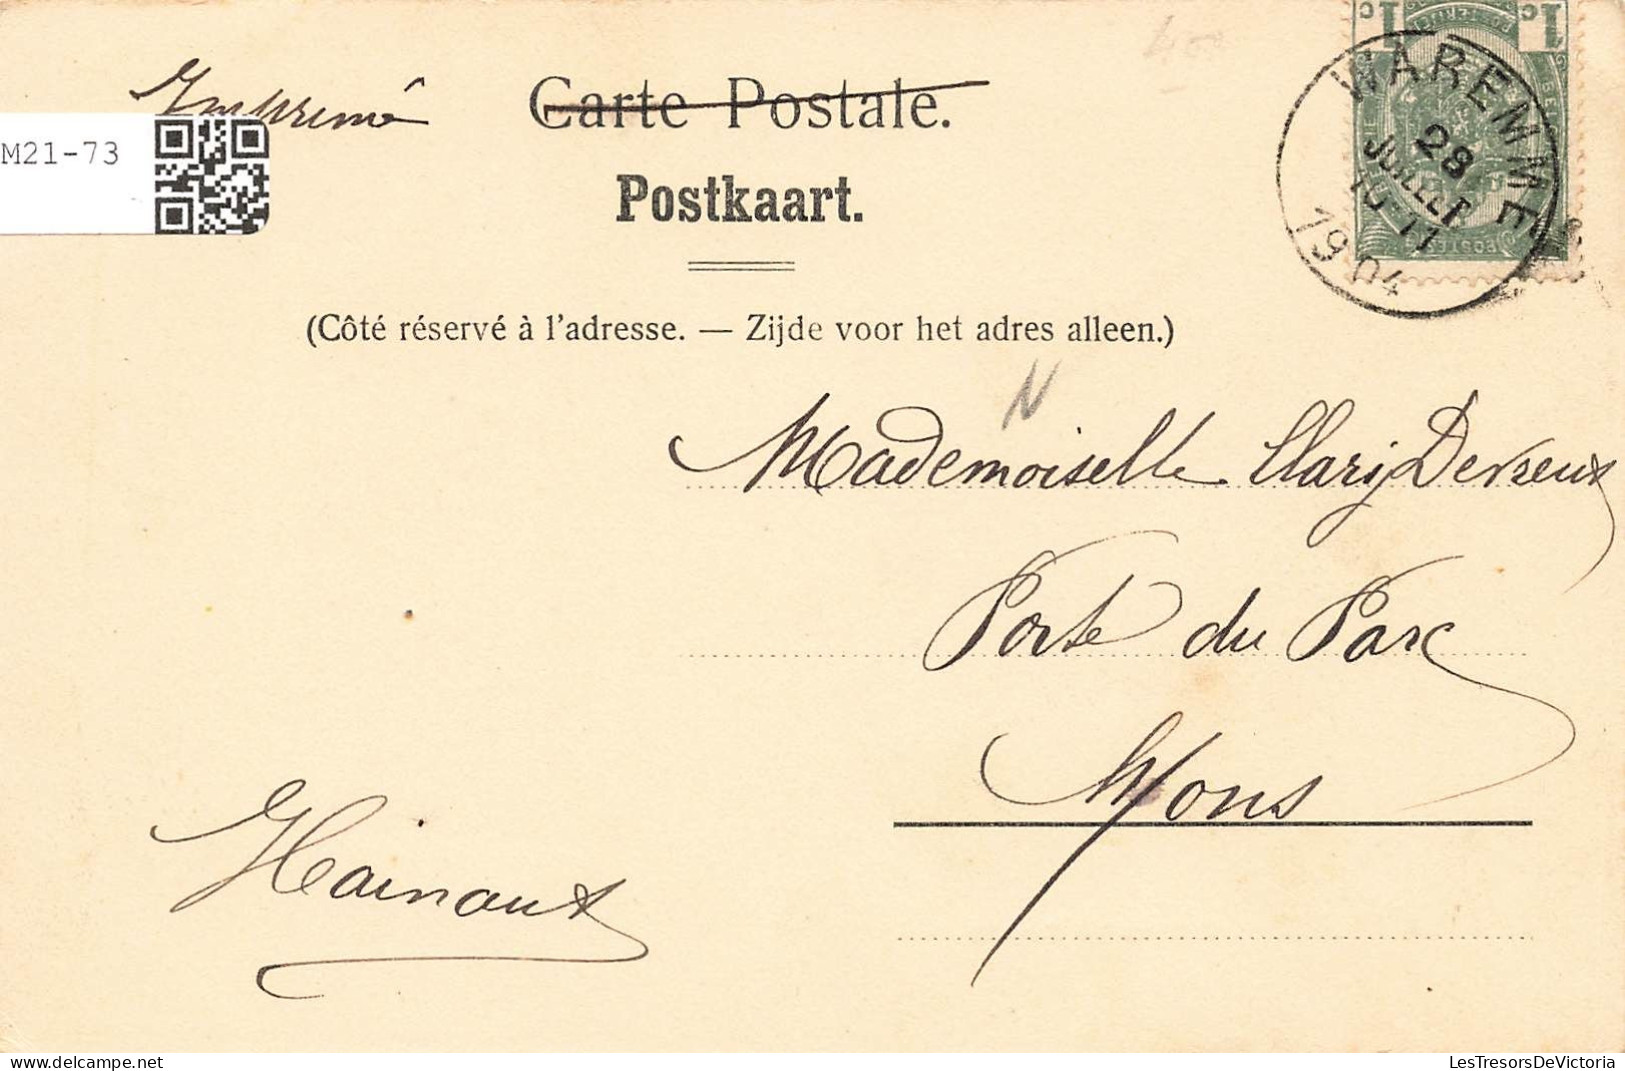 Imprimé
Carte Postale.
M21-73
Postkaart.
(Côté réservé à l'adresse. — Zijde voor het adres alleen.)
1c 1c
WAREMME
28
JUILLET
10-11
1904
N
Mademoiselle Clary Devreux
Porte du Parc
Mons
Hainaut
LesTresorsDeVictoria